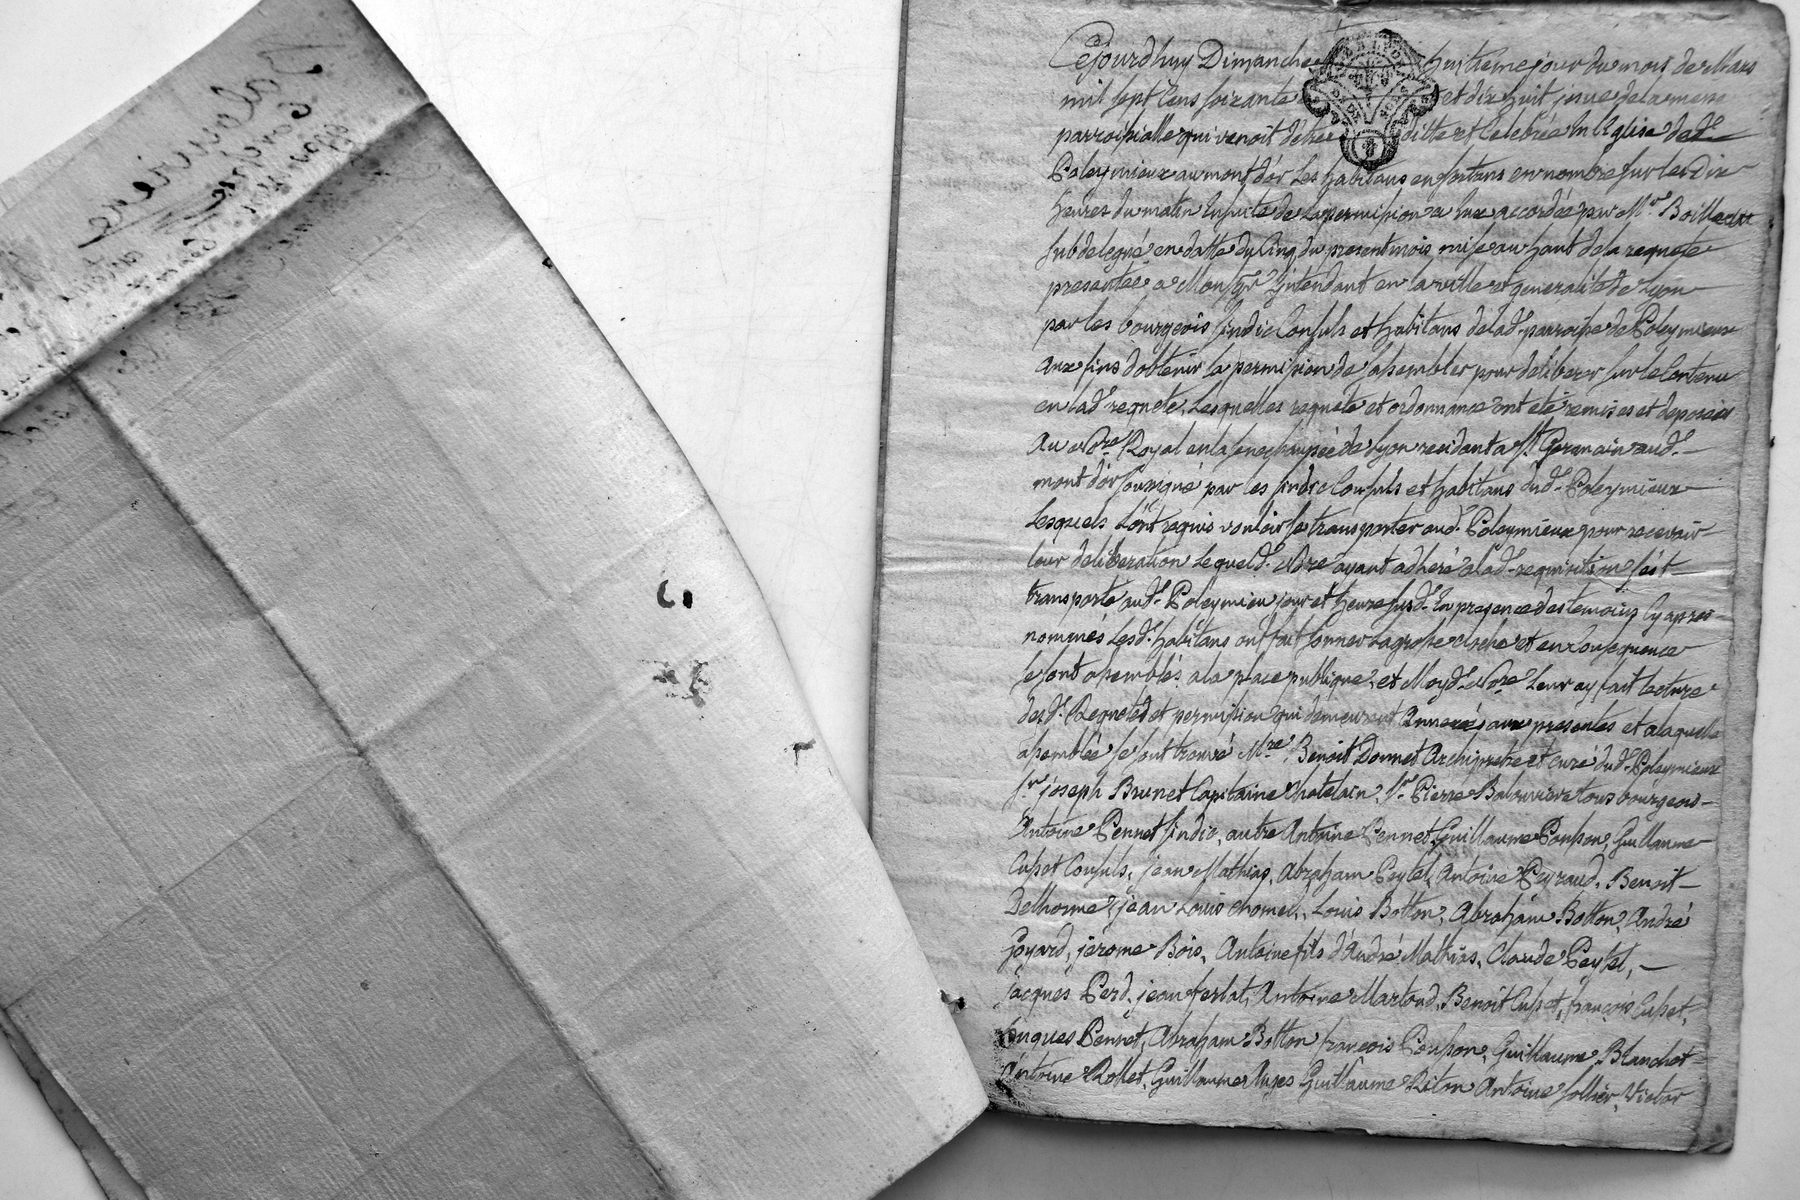 Balouviere
Cejourdhuy Dimanche huitieme jour du mois de Mars
mil sept Cens soixante et dix huit, issue de la messe
parroissialle qui venoit detre ditte et Celebrée En l'Eglise dud.
Poleymieux au mont d'or Les habitans en sortans en nombre sur les Dix
heures du matin Ensuite de la permission a Eux accordée par Mr. Boilleau
subdelegué en datte du Cinq du present mois mise au haut de la requete
presentée a Monsgr. Intendant en la ville et generalité de Lyon
par les bourgeois sindic Consuls et habitans de lad. parroisse de Poleymieux
aux fins d'obtenir la permission de s'assembler pour deliberer sur le Contenu
en lad. requete, Lesquelles requete et ordonnance ont été remises et deposées
Au Nore. Royal en la senechaussée de Lyon residant a St. Germain aud.
mont d'or soussigné par les sindic Consuls et habitans dud. Poleymieux
Lesquels L'ont requis vouloir se transporter aud. Poleymieux pour recevoir
leur deliberation Lequel d. Nore ayant adheré a lad. requisition s'est
transporté aud. Poleymieu jour et heure susd. En presence des temoins Cy apres
nommés Les d. habitans ont fait sonner la grosse cloche et en Consequence
se sont assemblés a la place publique, et Moyd. Nore Leur ay fait lecture
desd. Requete et permission qui demeurent Annexés aux presentes et a laquelle
assemblée se sont trouvé Mre. Benoit Donnet Archipretre et curé dud. Poleymieux
Sr. joseph Brunet Capitaine Chatelain, Sr. Pierre Balouviere tous bourgeois
Antoine Pennet sindic, autre Antoine Pennet, Guillaume Ponson, Guillaume
Cusset Consuls, jean Mathias, Abraham Peytel, Antoine Peyraud, Benoit
Delhorme, jean Louis chomel, Louis Botton, Abraham Botton, André
Goyard, jerome Bois, Antoine fils d'André Mathias, Claude Peytel,
jacques Perd, jean ferlat, Antoine Martoud, Benoit Cusset, françois Cusset,
hugues Pennet, Abraham Botton françois Ponson, Guillaume Blanchet
Antoine Rollet, Guillaume Guillaume Riton Antoine Victor